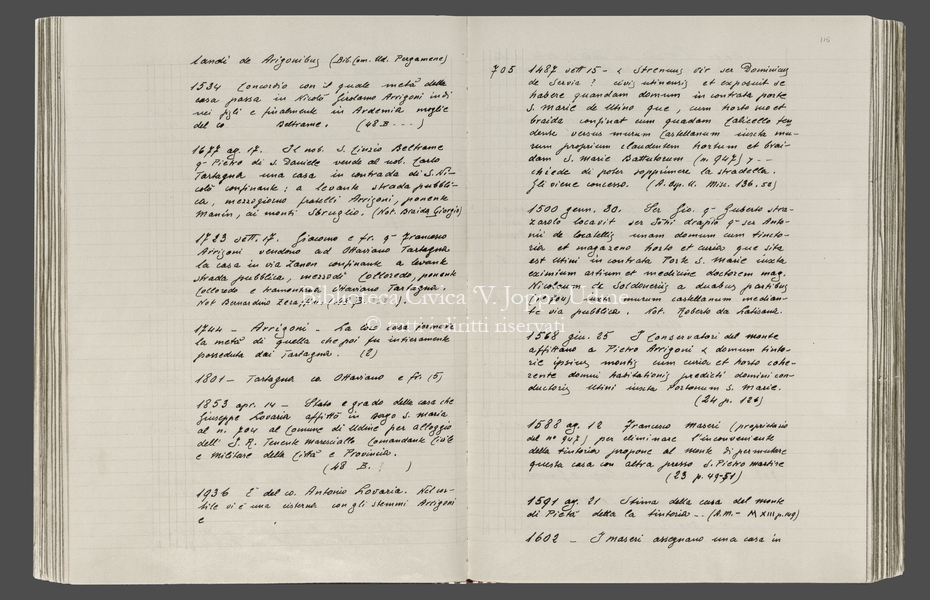 landi de Arigonibus (Bib. Com. Ud. Pergamene)
1534 Concordio con il quale metà della
casa passa in Nicolò Girolamo Arrigoni indi
nei figli e finalmente in Ardemia moglie
del co. Beltrame. (48 B - - - )
1677 ag. 17. Il nob. S. Cinzio Beltrame
q. Pietro di S. Daniele vende al nob. Carlo
Tartagna una casa in contrada di S. Ni-
colò confinante: a levante strada pubbli-
ca, mezzogiorno fratelli Arrigoni, ponente
Manin, ai monti Sbruglio. (Not. Braida Giorgio)
1723 sett. 17. Giacomo e fr. q. Francesco
Arrigoni vendono ad Ottaviano Tartagna
la casa in via Zanon confinante a levante
strada pubblica, mezzodì Colloredo, ponente
Colloredo e tramontana Ottaviano Tartagna.
Not Bernardino
1744 - Arrigoni - La loro casa
la metà di quella che poi fu intieramente
posseduta dai Tartagna. (2)
1801 - Tartagna co. Ottaviano e fr. (5)
1853 apr. 14 - Stato e grado della casa che
Giuseppe Lovaria affittò in Borgo S. Maria
al n. 704 al Comune di Udine per alloggio
dell' I. R. Tenente maresciallo Comandante Civile
e Militare della Città e Provincia.
(48 B. )
1936 È del co. Antonio Lovaria. Nel cor-
tile vi è una cisterna con gli stemmi Arrigoni
e
115
705 1487 sett 15 - « Strenuus vir ser Dominicus
de Servia ? civis utinensis et exposuit se
habere quandam domum in contrata porte
S. Marie de Utino que, cum horto suo et
braida confinat cum quadam Calicello ten
dente versus murum Castellanum iuxta mu-
rum proprium claudentem hortum et brai-
dam S. Marie Battutorum (n. 947) » --
chiede di poter sopprimere la stradella.
Gli viene concesso. (A. Osp. U. Misc. 136. 50)
1500 genn. 30. Ser Gio. q. Guberto stra-
zarolo locavit ser Toni drapiò q. ser Anto-
nii de locatellis unam domum cum tincto-
ria et magazeno horto et curia que sita
est Utini in contrata Porte S. Marie iuxta
eximium artium et medicine doctorem mag.
Nicolaum de Soldoneriis a duabus partibus
murum castellanum median-
te via pubblica. Not. Roberto da Latisana.
1568 giu. 25 I Conservatori del monte
affittano a Pietro Arrigoni « domum tinto-
rie ipsius montis cum curia et horto cohe-
rente domui habitationis predicti domini con-
ductoris Utini iuxta Portonum S. Marie.
(24 p. 126)
1588 ag. 12 Francesco Maseri (proprietario
del n° 947) per eliminare l'inconveniente
della tintoria propone al monte di permutare
questa casa con altra presso S. Pietro martire
(23 p. 49-51)
1591 ag. 21 Stima della casa del monte
di Pietà detta la tintoria -- (A.M. - M XIII p. 149)
1602 - I Maseri assegnano una casa in
Biblioteca Civica 'V. Joppi' Udine
© tutti i diritti riservati